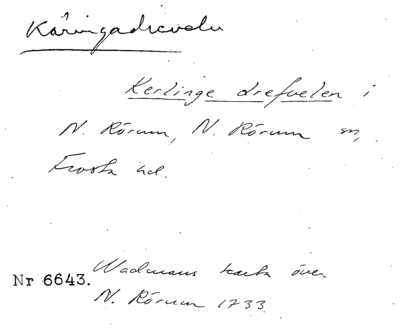 Käringadrevelu
Kerlinge drefvelen i
N. Rörum, N. Rörum sn,
Frosta hd.
Wadmans karta över
Nr 6643.
N. Rörum 1733